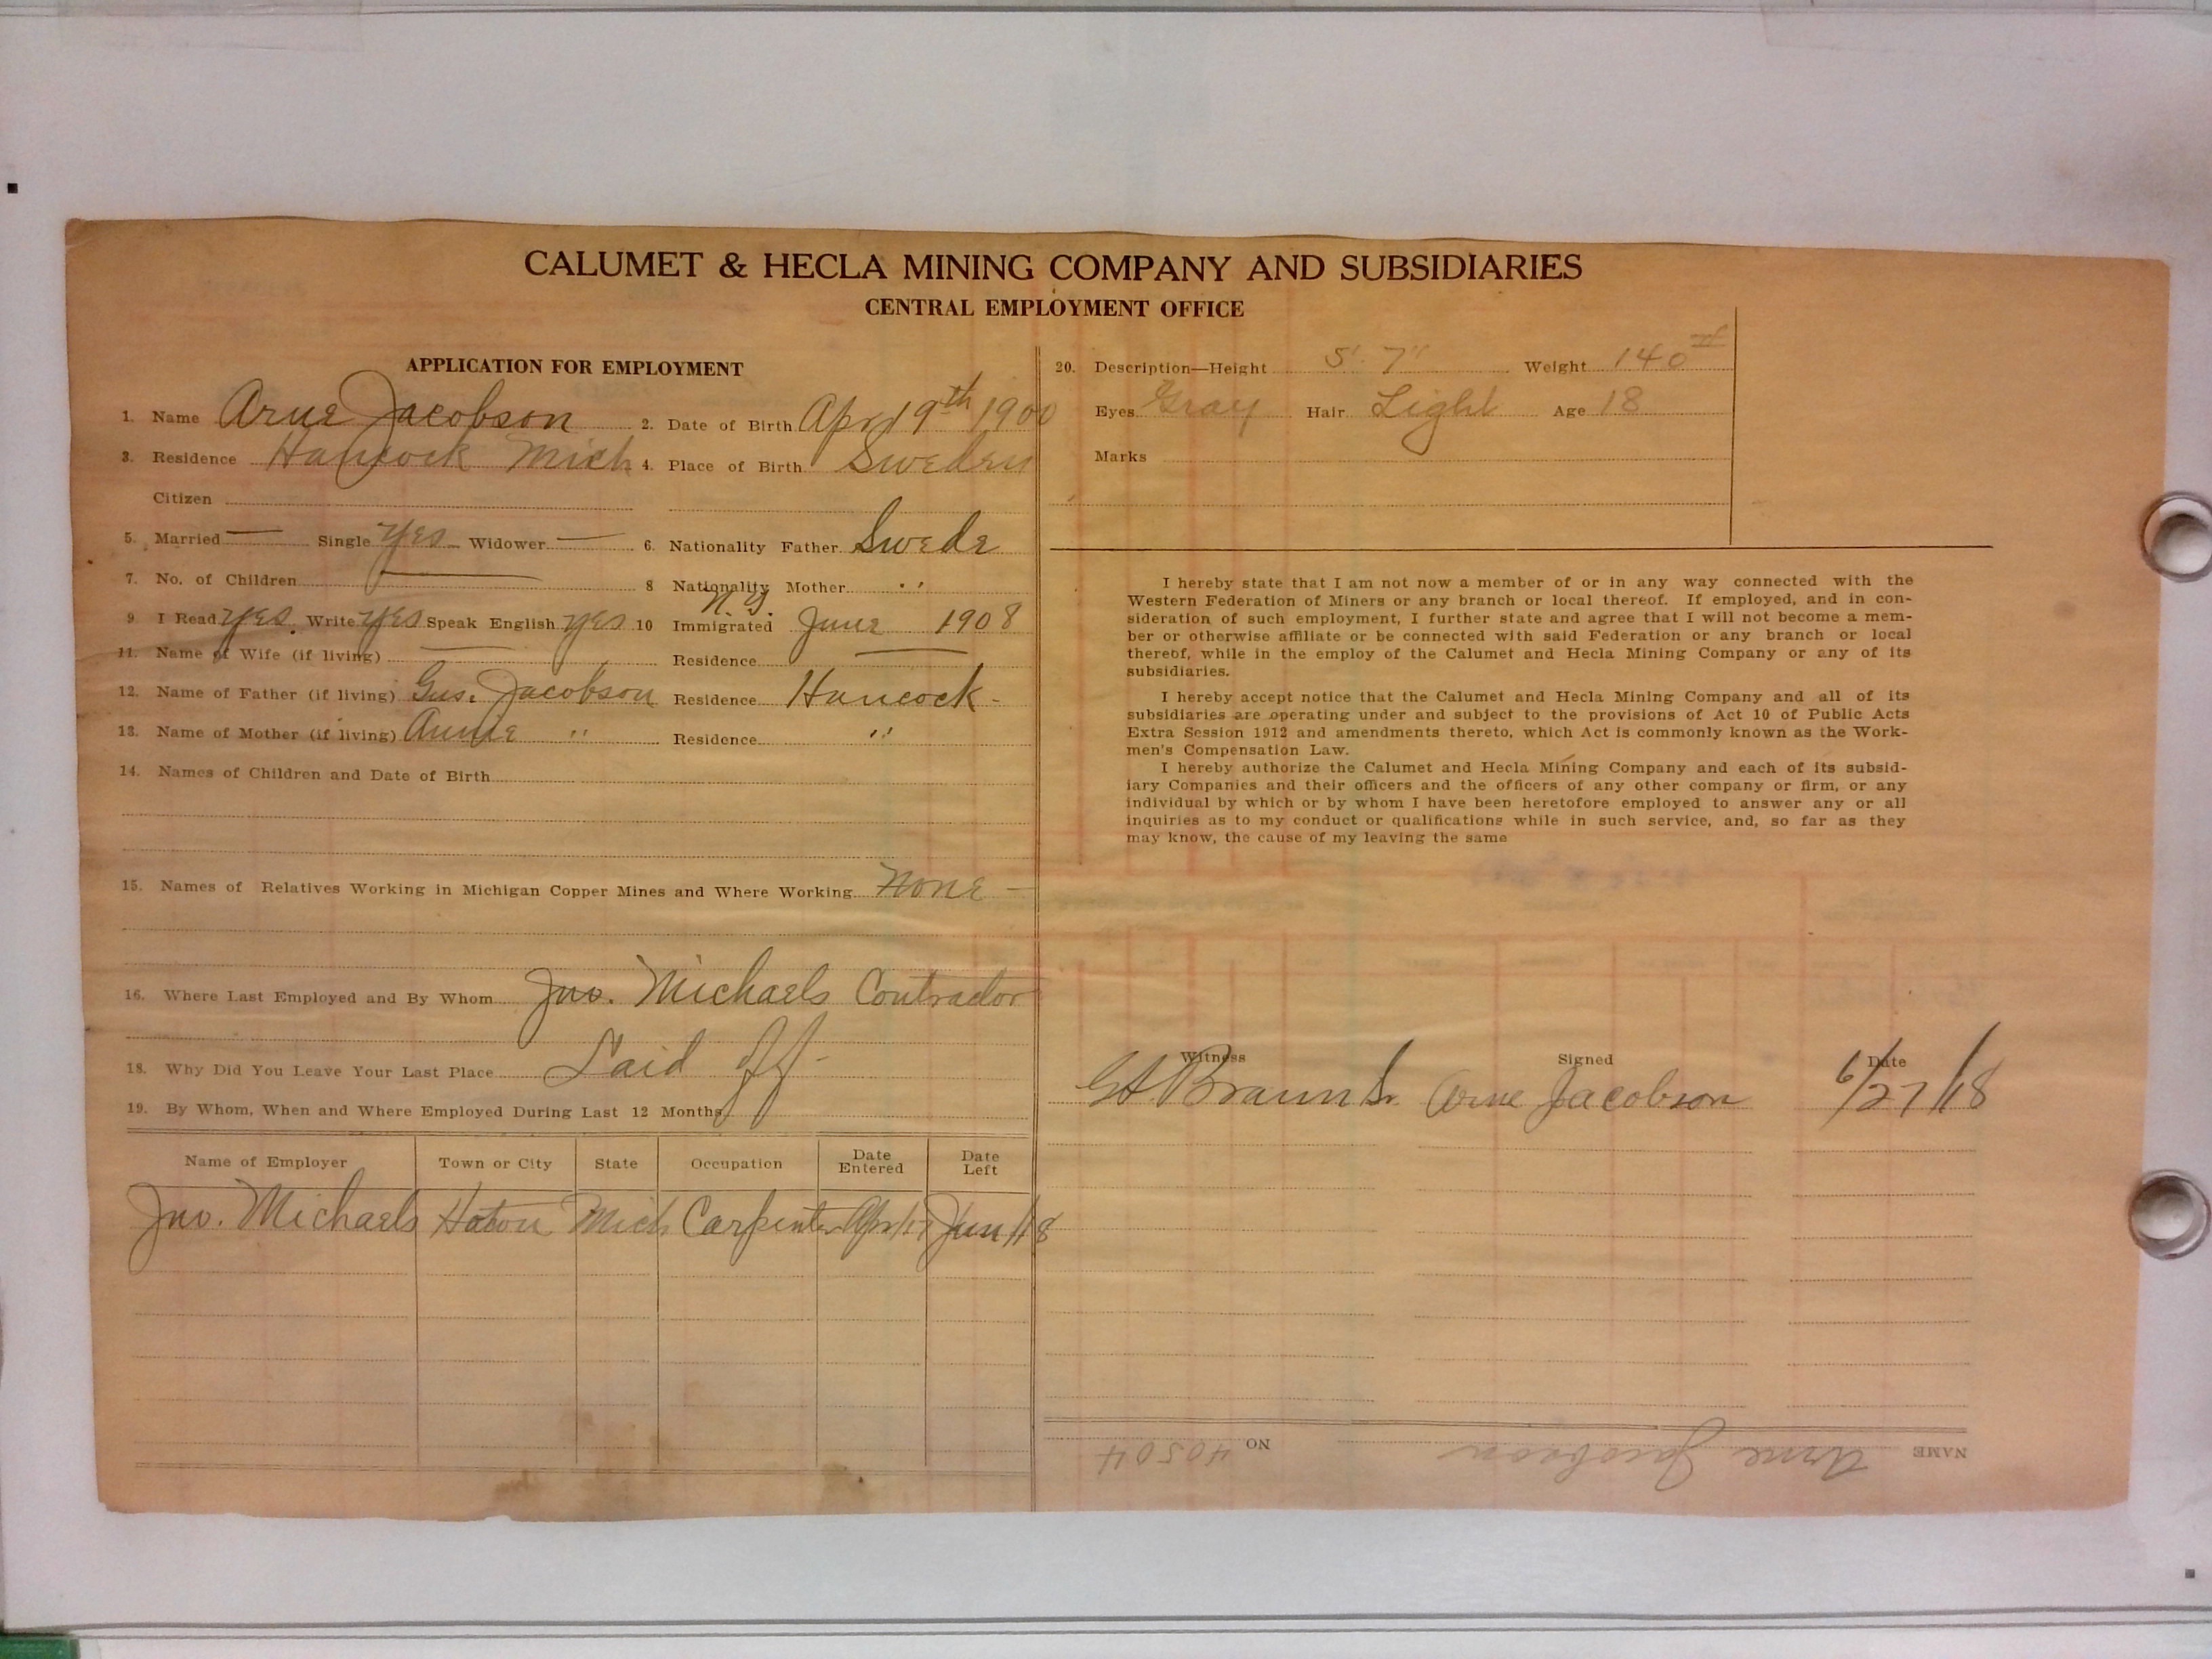 CALUMET & HECLA MINING COMPANY AND SUBSIDIARIES
CENTRAL EMPLOYMENT OFFICE
APPLICATION FOR EMPLOYMENT
1. Name Arne Jacobson 2. Date of Birth Apr 19th 1900
3. Residence Hancock Mich 4. Place of Birth Sweden
Citizen
5. Married — Single Yes Widower — 6. Nationality Father Swede
7. No. of Children — 8 Nationality Mother "
N.Y.
9. I Read Yes. Write Yes Speak English Yes 10 Immigrated June 1908
11. Name of Wife (if living) — Residence —
12. Name of Father (if living) Gus. Jacobson Residence Hancock -
13. Name of Mother (if living) Annie " Residence "
14. Names of Children and Date of Birth
15. Names of Relatives Working in Michigan Copper Mines and Where Working None —
16. Where Last Employed and By Whom Jno. Michaels Contractor
18. Why Did You Leave Your Last Place Laid off -
19. By Whom, When and Where Employed During Last 12 Months
Name of Employer Town or City State Occupation Date Entered Date Left
Jno. Michaels Hoton Mich Carpenter Apr/17 Jun/18
20. Description—Height 5' 7" Weight 140 #
Eyes Gray Hair Light Age 18
Marks
I hereby state that I am not now a member of or in any way connected with the
Western Federation of Miners or any branch or local thereof. If employed, and in con-
sideration of such employment, I further state and agree that I will not become a mem-
ber or otherwise affiliate or be connected with said Federation or any branch or local
thereof, while in the employ of the Calumet and Hecla Mining Company or any of its
subsidiaries.
I hereby accept notice that the Calumet and Hecla Mining Company and all of its
subsidiaries are operating under and subject to the provisions of Act 10 of Public Acts
Extra Session 1912 and amendments thereto, which Act is commonly known as the Work-
men's Compensation Law.
I hereby authorize the Calumet and Hecla Mining Company and each of its subsid-
iary Companies and their officers and the officers of any other company or firm, or any
individual by which or by whom I have been heretofore employed to answer any or all
inquiries as to my conduct or qualifications while in such service, and, so far as they
may know, the cause of my leaving the same
Witness Signed Date
Braun Arne Jacobson 6/27/18
NAME Arne Jacobson NO 40504